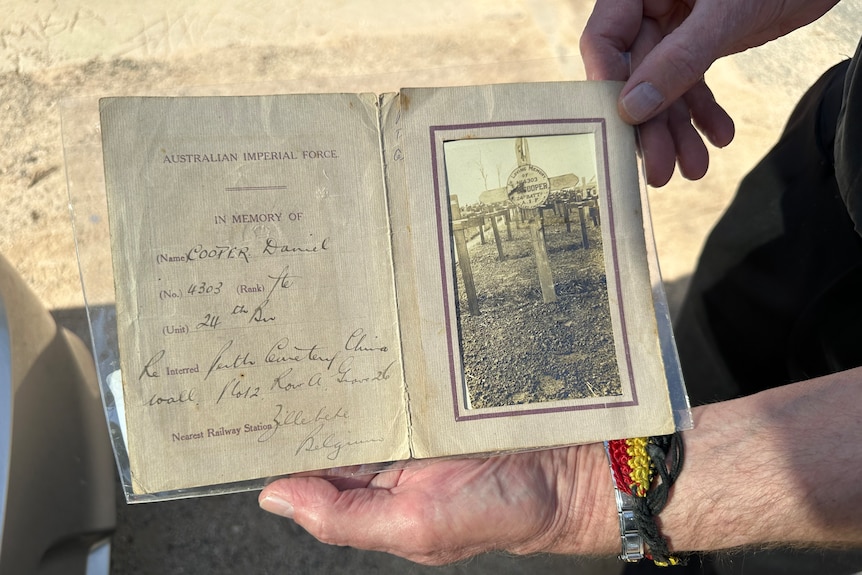 AUSTRALIAN IMPERIAL FORCE.
IN MEMORY OF
(Name) COOPER Daniel
(No.) 4303 (Rank) Pte
(Unit) 24th Bn
Re Interred Perth Cemetery China
wall Plot 2 Row A Grave 26
Nearest Railway Station Zillebeke
Belgium
IN LOVING MEMORY
OF
4303
COOPER
24 BATT
A.I.F.